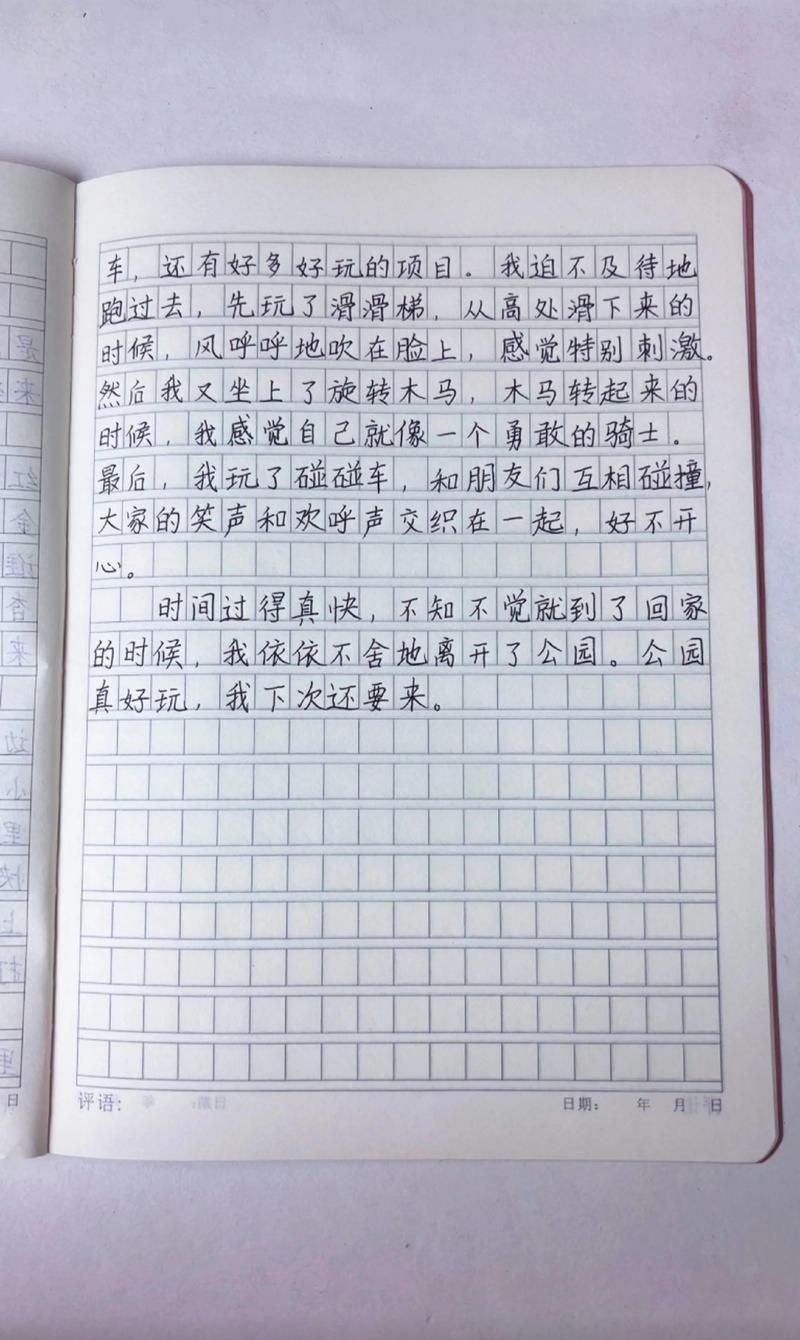 车，还有好多好玩的项目。我迫不及待地
跑过去，先玩了滑滑梯，从高处滑下来的
时候，风呼呼地吹在脸上，感觉特别刺激。
然后我又坐上了旋转木马，木马转起来的
时候，我感觉自己就像一个勇敢的骑士。
最后，我玩了碰碰车，和朋友们互相碰撞，
大家的笑声和欢呼声交织在一起，好不开
心。
时间过得真快，不知不觉就到了回家
的时候，我依依不舍地离开了公园。公园
真好玩，我下次还要来。
评语：
日期： 年 月 日